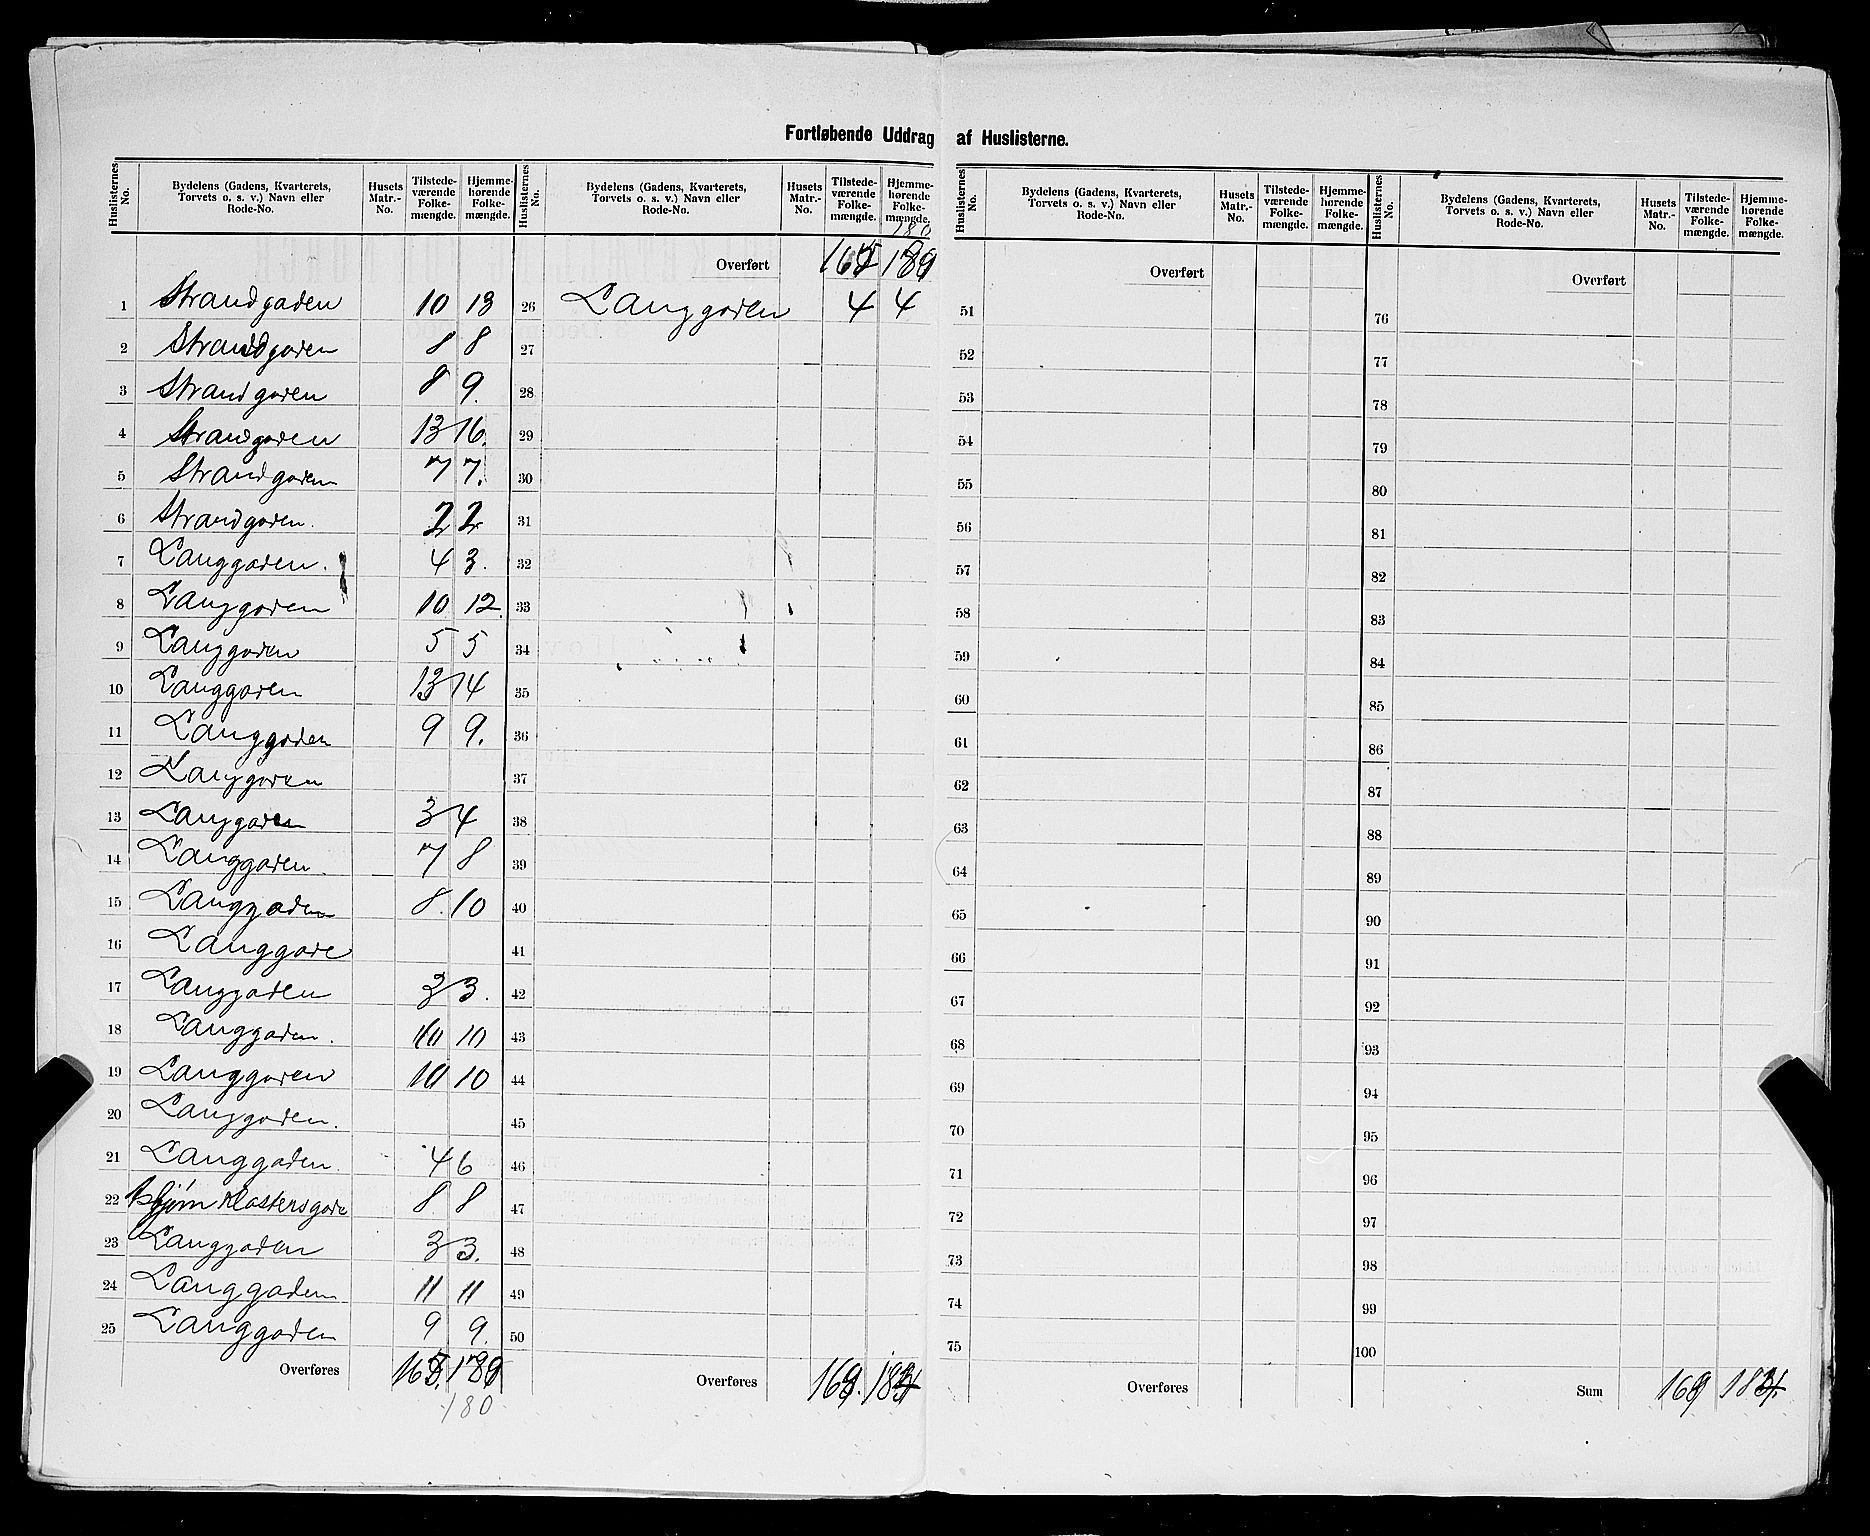 Fortløbende Uddrag af Huslisterne.
Huslisternes No. | Bydelens (Gadens, Kvarterets, Torvets o. s. v.) Navn eller Rode-No. | Husets Matr.-No. | Tilstede-værende Folke-mængde. | Hjemme-hørende Folke-mængde.
1 Strandgaden 10 13
2 Strandgaden 8 8
3 Strandgaden 8 9.
4 Strandgaden 13 16.
5 Strandgaden 7 7.
6 Strandgaden. 2 2
7 Langgaden. 4 3.
8 Langgaden 10 12
9 Langgaden 5 5
10 Langgaden 13 14
11 Langgaden 9 9.
12 Langgaden
13 Langgaden 3 4
14 Langgaden. 7 8
15 Langgaden 8. 10
16 Langgade
17 Langgaden 3 3.
18 Langgaden. 10 10
19 Langgaden 10 10
20 Langgaden.
21 Langgaden. 4 6
22 Klostersgade 8 8
23 Langgaden 3 3.
24 Langgaden 11 11
25 Langgaden 9 9.
Overføres 165. 180
180
Huslisternes No. | Bydelens (Gadens, Kvarterets, Torvets o. s. v.) Navn eller Rode-No. | Husets Matr.-No. | Tilstede-værende Folke-mængde. | Hjemme-hørende Folke-mængde.
180
Overført 165
26 Langgaden 4 4
27
28
29
30
31
32
33
34
35
36
37
38
39
40
41
42
43
44
45
46
47
48
49
50
Overføres 169. 184
Huslisternes No. | Bydelens (Gadens, Kvarterets, Torvets o. s. v.) Navn eller Rode-No. | Husets Matr.-No. | Tilstede-værende Folke-mængde. | Hjemme-hørende Folke-mængde.
Overført
51
52
53
54
55
56
57
58
59
60
61
62
63
64
65
66
67
68
69
70
71
72
73
74
75
Overføres
Huslisternes No. | Bydelens (Gadens, Kvarterets, Torvets o. s. v.) Navn eller Rode-No. | Husets Matr.-No. | Tilstede-værende Folke-mængde. | Hjemme-hørende Folke-mængde.
Overført
76
77
78
79
80
81
82
83
84
85
86
87
88
89
90
91
92
93
94
95
96
97
98
99
100
Sum 169 184.